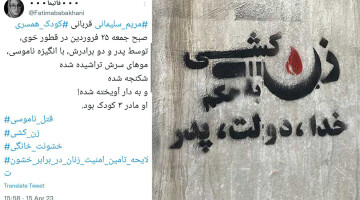 ۰۰۰فاتیما۰۰۰
@Fatimababakhani
#مریم_سلیمانی قربانی #کودک_همسری
صبح جمعه ۲۵ فروردین در قطور خوی،
توسط پدر و دو برادرش، با انگیزه ناموسی،
موهای سرش تراشیده شده
شکنجه شده
و به دار آویخته شده!
او مادر ۳ کودک بود.
#قتل_ناموسی
#زن_کشی
#خشونت_خانگی
#لایحه_تامین_امنیت_زنان_در_برابر_خشون
ت
Translate Tweet
15:58 · 15 Apr 23
زن کشی
با حکم
خدا، دولت، پدر